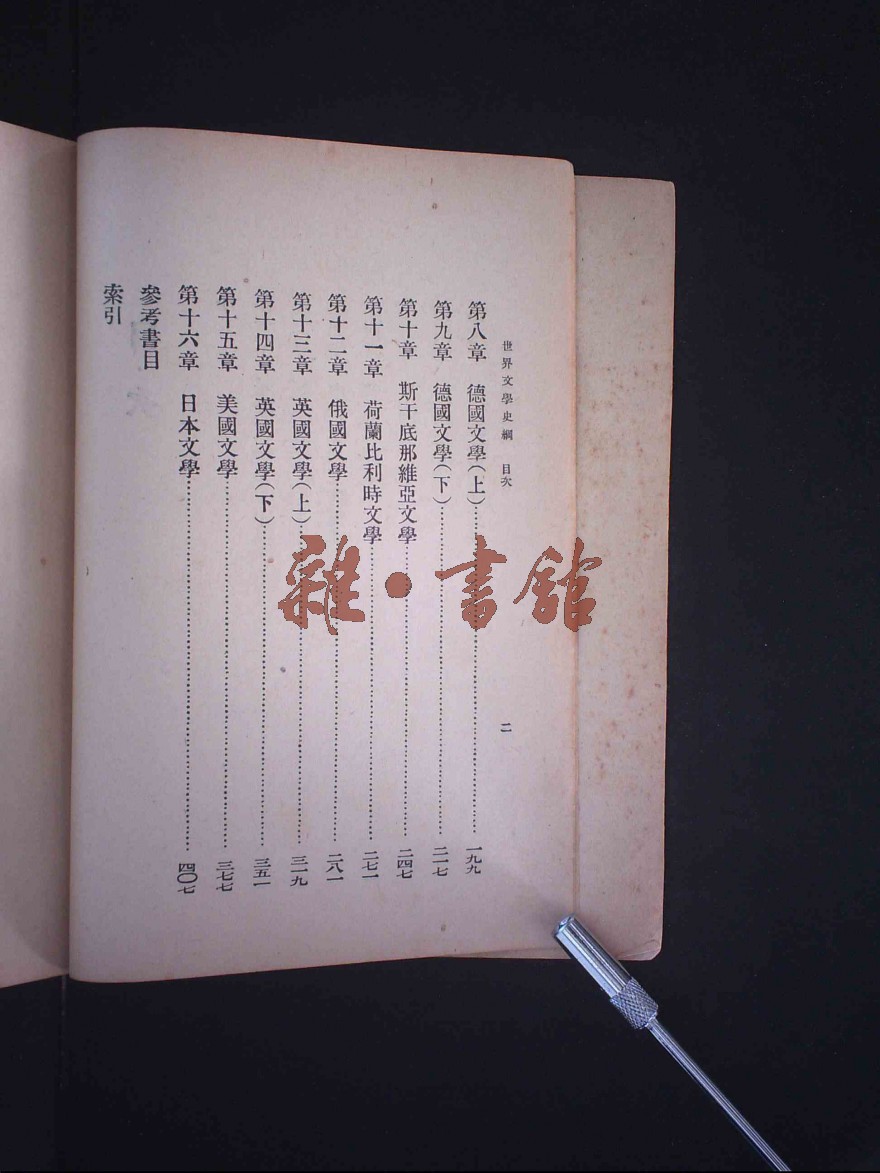 世界文學史綱 目次
二
第八章 德國文學(上)……一九九
第九章 德國文學(下)……二一七
第十章 斯干底那維亞文學……二四七
第十一章 荷蘭比利時文學……二七一
第十二章 俄國文學……二八一
第十三章 英國文學(上)……三一九
第十四章 英國文學(下)……三五一
第十五章 美國文學……三七七
第十六章 日本文學……四〇七
參考書目
索引
雜·書館